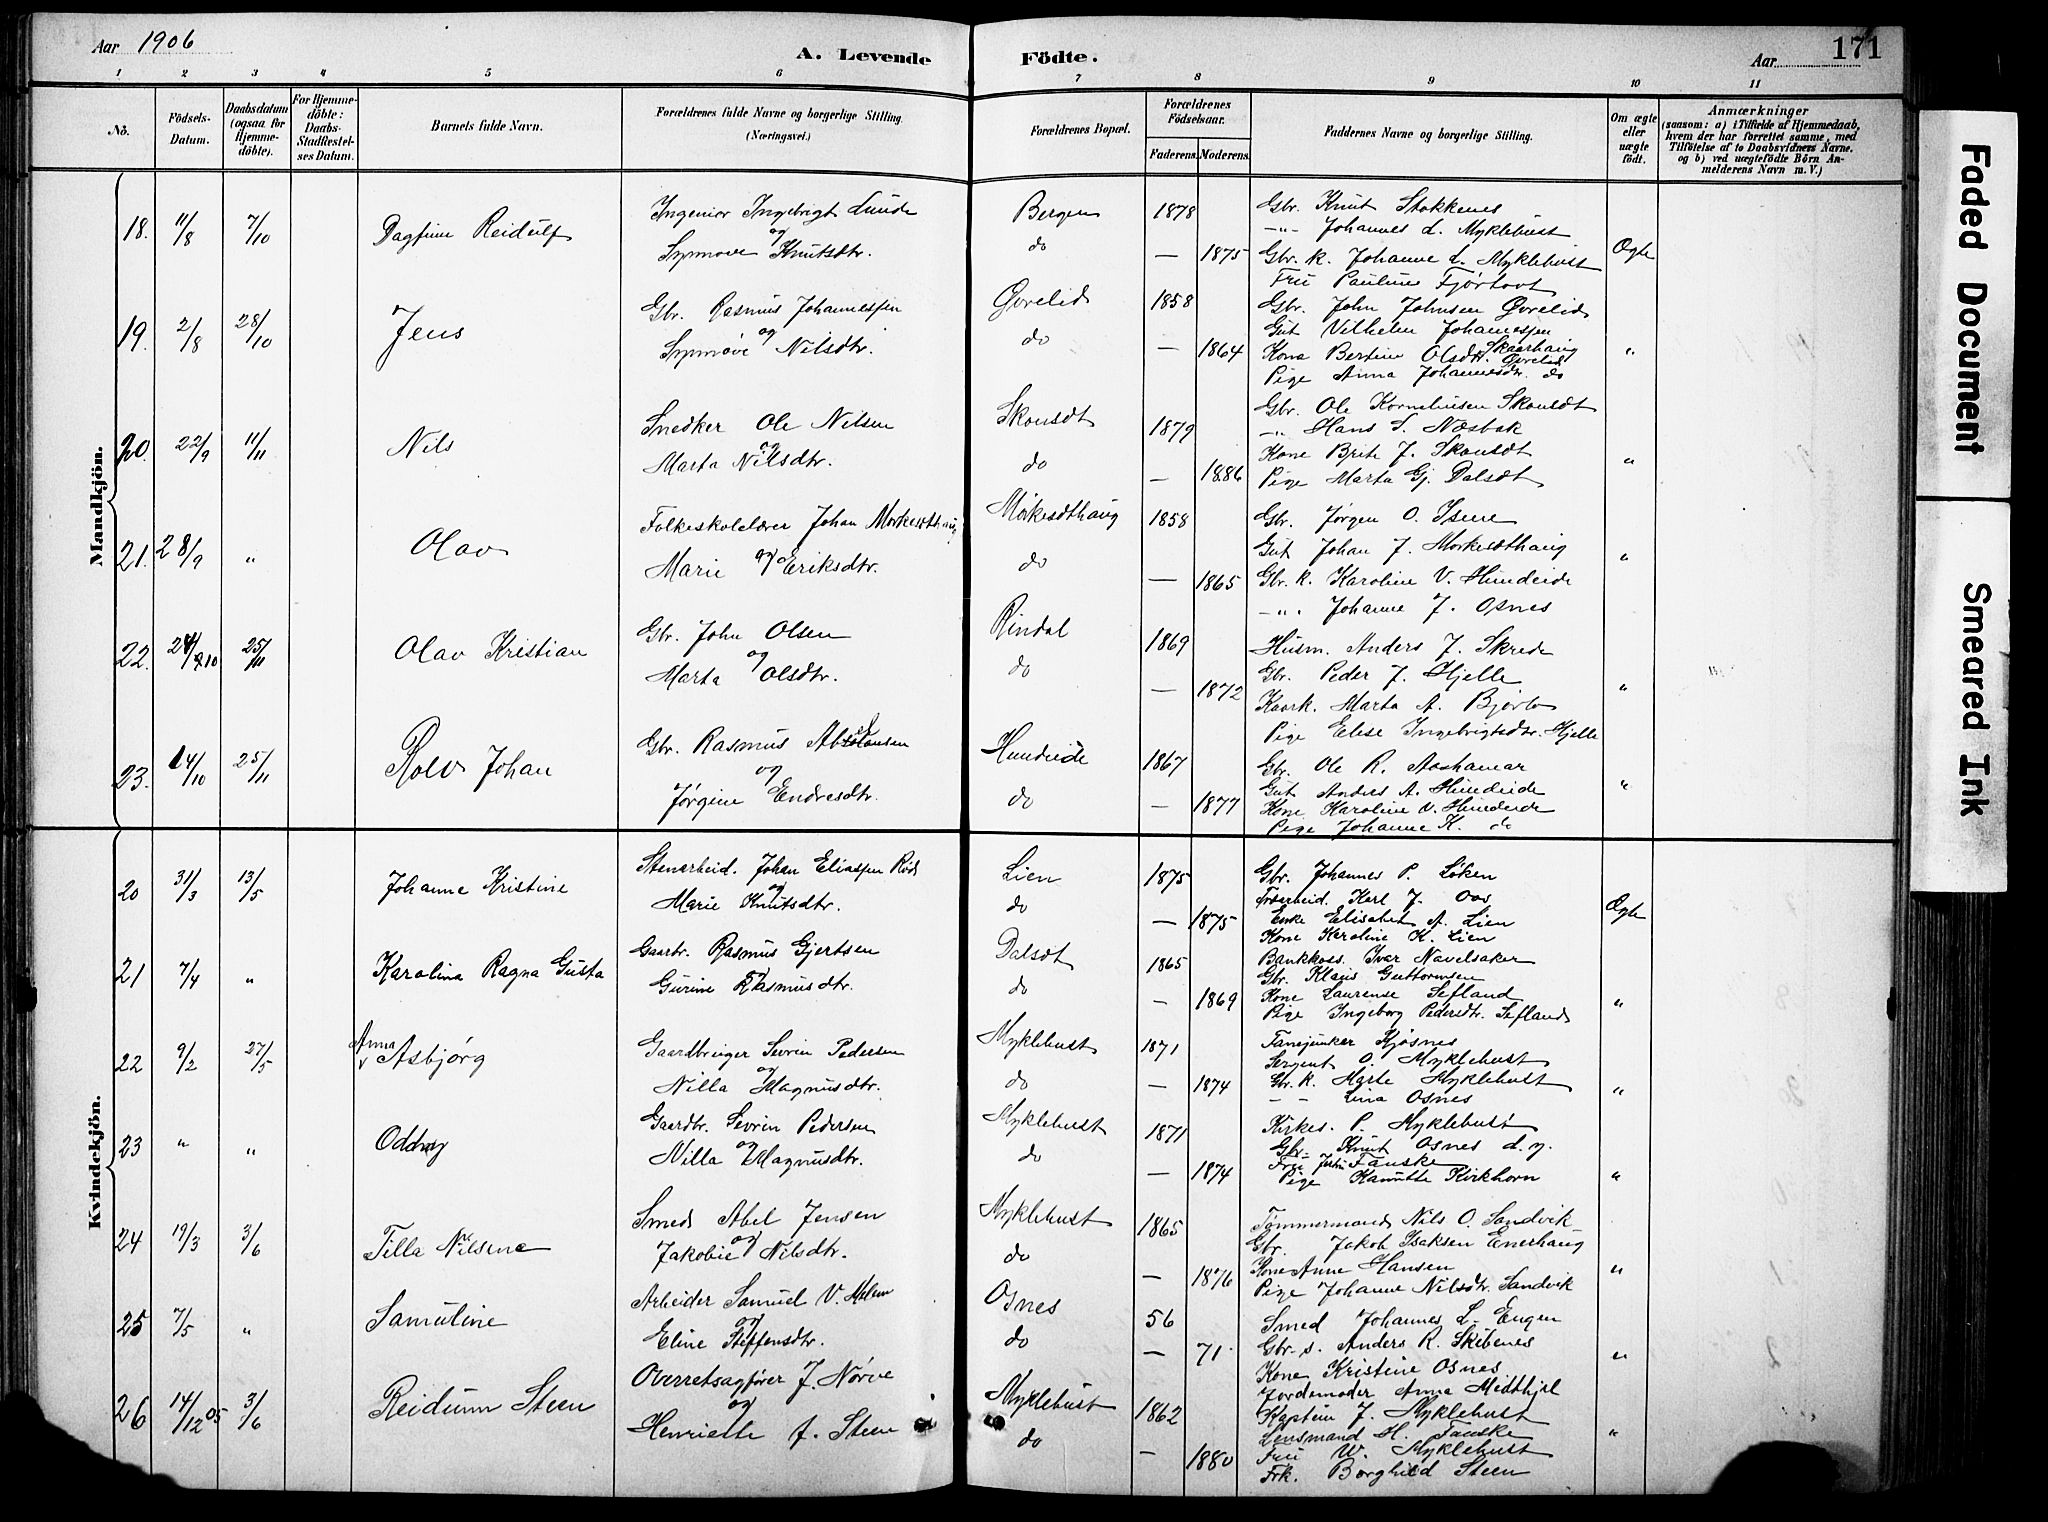 Aar 1906
A. Levende Födte.
Aar 171
1 2 3 4 5 6 7 8 9 10 11
No.
Födsels-Datum.
Daabsdatum (ogsaa for Hjemme-döbte).
For Hjemme-döbte: Daabs-Stadfæstel-ses Datum.
Barnets fulde Navn.
Forældrenes fulde Navne og borgerlige Stilling. (Næringsvei.)
Forældrenes Bopæl.
Forældrenes Födselsaar.
Faderens. Moderens.
Faddernes Navne og borgerlige Stilling.
Om ægte eller uægte födt.
Anmærkninger
(saasom: a) i Tilfælde af Hjemmedaab, hvem der har forrettet samme, med Tilföielse af to Daabsvidners Navne. og b) ved uægtefödte Börn An-melderens Navn m. V.)
Mandkjön.
18. 11/8 7/10 Dagfinn Reidulf
Ingeniør Ingebrigt Lunde
og
Synnøve Knutsdtr.
Bergen 1878
do — 1875
Gbr. Knut Stokkenes
-"- Johannes L. Myklebust
Gbr. k. Johanne L. Myklebust
Fru Pauline Fjørtoft
Ægte
19. 2/8 28/10 Jens
Gbr. Rasmus Johannessen
og
Synnøve Nilsdtr.
Øvrelid 1858
do — 1864
Gbr. John Johnsen Øvrelid
Gut Vilhelm Johannessen Skaarhaug
Kona Bertine Olsdtr. Øvrelid
Pige Anna Johannesdr. do
"
20. 22/9 11/11 Nils
Snedker Ole Nilsen
og
Marta Nilsdtr.
Skousdt 1879
do — 1886
Gbr. Ole Korneliusen Skousdt
-"- Hans S. Næsbak
Kone Brite J. Skousdt
Pige Marta Gj. Dalsdt
"
21. 28/9 " Olav
Folkeskolelærer Johan Morkesdthaug
og
Marie Eriksdtr.
Morkesdthaug 1858
do — 1865
Gbr. Jørgen O. Isene
Gut Johan J. Morkesdthaug
Gbr. k. Karoline V. Hundeide
-"- Johanne J. Osnes
"
22. 24/10 25/11 Olav Kristian
Gbr. John Olsen
og
Marta Olsdtr.
Rindal 1869
do — 1872
Husm. Anders J. Skrede
Gbr. Peder J. Hjelle
Kaark. Marta A. Bjørlo
Pige Elise Ingebrigtsdtr. Hjelle
"
23. 14/10 25/11 Rolv Johan
Gbr. Rasmus Absalonsen
og
Jørgine Endresdtr.
Hundeide 1867
do — 1877
Gbr. Ole R. Aashamar
Gut Anders A. Hundeide
Kone Karoline V. Hundeide
Pige Johanne K. do
"
Kvindekjön.
20 31/3 13/5 Johanne Kristine
Stenarbeid. Johan Eliassen Rød
og
Marie Knutsdtr.
Lien 1875
do — 1875
Gbr. Johannes P. Løken
Træarbeid. Karl J. Aas
Enke Elisabet A. Lien
Kone Karoline K. Lien
Ægte
21 7/4 " Karolina Ragna Gusta
Gaarbr. Rasmus Gjertsen
og
Gurine Rasmusdtr.
Dalsdt 1865
do — 1869
Bankkass. Ivar Navelsaker
Gbr. Klaus Guttormsen
Kone Laurense Sefland
Pige Ingeborg Pedersdtr. Sefland
"
22 9/2 27/5 Anna Asbjørg
Gaardbruger Sevrin Pedersen
og
Nilla Magnusdtr.
Myklebust 1871
do — 1874
Fanejunker Kjøsnes
Sergent O. Myklebust
Gbr. k. Marte Myklebust
- - Lina Osnes
"
23 " " Oddny
Gaardbr. Sevrin Pedersen
og
Nilla Magnusdtr.
Myklebust 1871
do — 1874
Kirkes. P. Myklebust
Gbr. Knut Osnes d. y.
Fru Fauske
Pige Kanutte Kvikhorn
"
24 19/3 3/6 Tilla Nilsine
Smed Abel Jensen
og
Jakobie Nilsdtr.
Myklebust 1865
do — 1876
Tømmermand Nils O. Sandvik
Gbr. Jakob Isaksen Enerhaug
Kone Anne Hansen
Pige Johanne Nilsdtr. Sandvik
"
25 7/5 " Samuline
Arbeider Samuel V. Melem
og
Eline Steffensdtr.
Osnes 56
do — 71
Smed Johannes L. Engen
Gbr. s. Anders R. Skibenes
Kone Kristine Osnes
Jordemoder Anna Midthjel
"
26 14/12 05 3/6 Reidunn Steen
Overretsagfører J. Nørve
og
Henriette f. Steen
Myklebust 1862
do — 1880
Kaptein J. Myklebust
Lensmand H. Fauske
Fru W. Myklebust
Frk. Borghild Steen
"
Faded Document
Smeared Ink